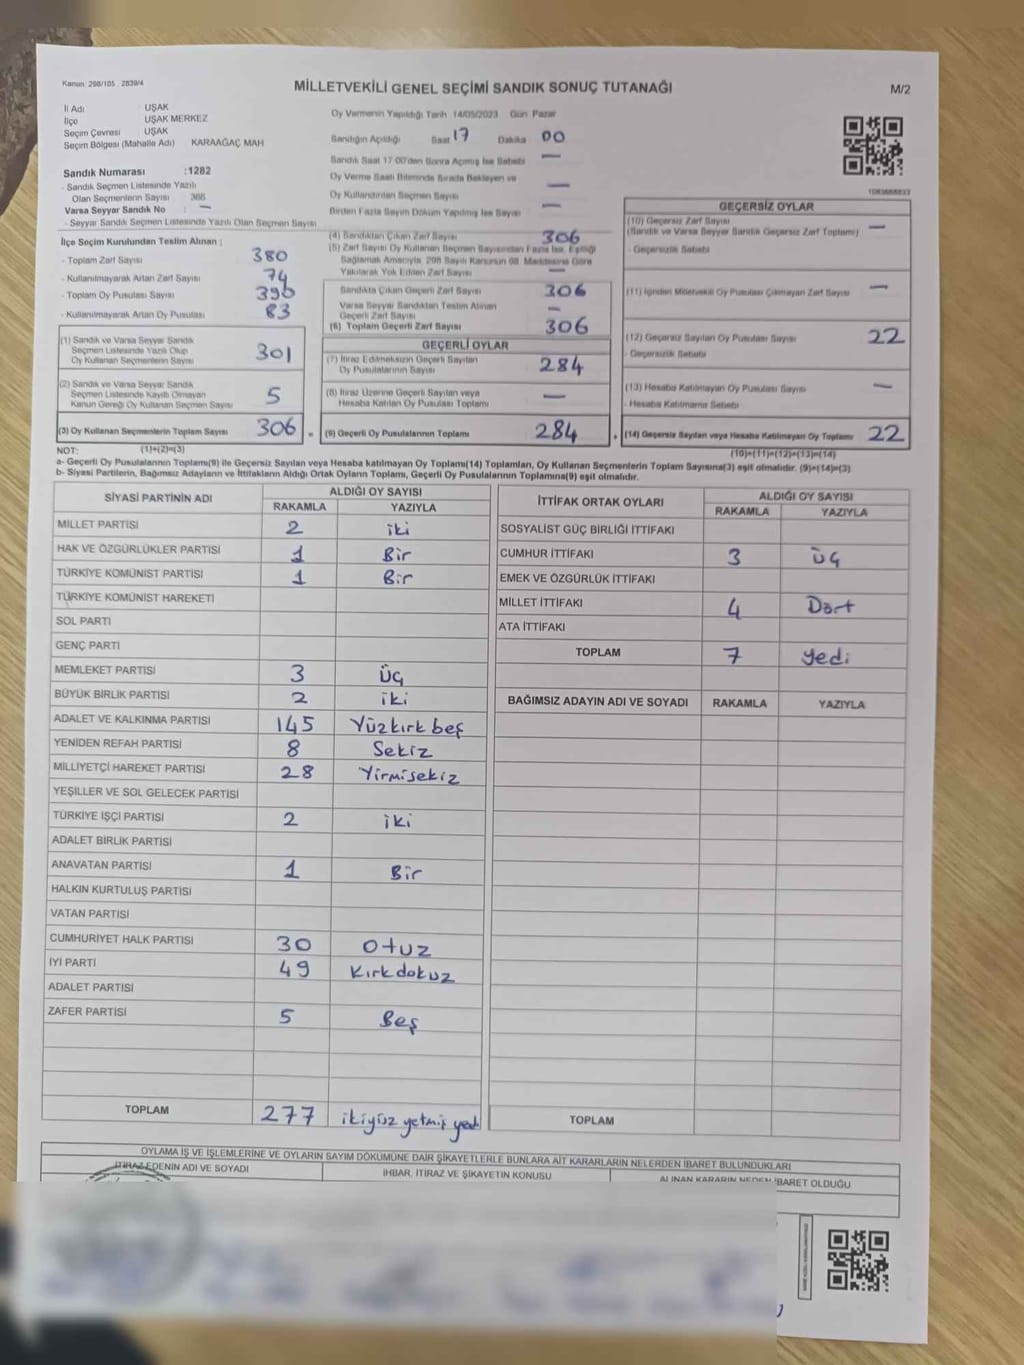 Kanun: 298/105 , 2839/4
MİLLETVEKİLİ GENEL SEÇİMİ SANDIK SONUÇ TUTANAĞI
M/2
İl Adı UŞAK
İlçe UŞAK MERKEZ
Seçim Çevresi UŞAK
Seçim Bölgesi (Mahalle Adı) KARAAĞAÇ MAH
Sandık Numarası :1282
- Sandık Seçmen Listesinde Yazılı
Olan Seçmenlerin Sayısı 366
Varsa Seyyar Sandık No : —
- Seyyar Sandık Seçmen Listesinde Yazılı Olan Seçmen Sayısı
İlçe Seçim Kurulundan Teslim Alınan ;
- Toplam Zarf Sayısı 380
- Kullanılmayarak Artan Zarf Sayısı 74
- Toplam Oy Pusulası Sayısı 390
- Kullanılmayarak Artan Oy Pusulası 83
(1) Sandık ve Varsa Seyyar Sandık
Seçmen Listesinde Yazılı Olup
Oy Kullanan Seçmenlerin Sayısı 301
(2) Sandık ve Varsa Seyyar Sandık
Seçmen Listesinde Kayıtlı Olmayan
Kanun Gereği Oy Kullanan Seçmen Sayısı 5
(3) Oy Kullanan Seçmenlerin Toplam Sayısı 306
(1)+(2)=(3)
Oy Vermenin Yapıldığı Tarih 14/05/2023 Gün Pazar
Sandığın Açıldığı Saat 17 Dakika 00
Sandık Saat 17:00'den Sonra Açmış İse Sebebi —
Oy Verme Saati Bitiminde Sırada Bekleyen ve
Oy Kullandırılan Seçmen Sayısı —
Birden Fazla Sayım Döküm Yapılmış İse Sayısı —
(4) Sandıktan Çıkan Zarf Sayısı 306
(5) Zarf Sayısı Oy Kullanan Seçmen Sayısından Fazla İse, Eşitliği
Sağlamak Amacıyla, 298 Sayılı Kanunun 98. Maddesine Göre
Yakılarak Yok Edilen Zarf Sayısı —
Sandıkta Çıkan Geçerli Zarf Sayısı 306
Varsa Seyyar Sandıktan Teslim Alınan
Geçerli Zarf Sayısı —
(6) Toplam Geçerli Zarf Sayısı 306
GEÇERLİ OYLAR
(7) İtiraz Edilmeksizin Geçerli Sayılan
Oy Pusulalarının Sayısı 284
(8) İtiraz Üzerine Geçerli Sayılan veya
Hesaba Katılan Oy Pusulası Toplamı —
= (9) Geçerli Oy Pusulalarının Toplamı 284
GEÇERSİZ OYLAR
(10) Geçersiz Zarf Sayısı
(Sandık ve Varsa Seyyar Sandık Geçersiz Zarf Toplamı) —
- Geçersizlik Sebebi
(11) İçinden Milletvekili Oy Pusulası Çıkmayan Zarf Sayısı —
(12) Geçersiz Sayılan Oy Pusulası Sayısı 22
- Geçersizlik Sebebi
(13) Hesaba Katılmayan Oy Pusulası Sayısı —
- Hesaba Katılmama Sebebi
+ (14) Geçersiz Sayılan veya Hesaba Katılmayan Oy Toplamı 22
(10)+(11)+(12)+(13)=(14)
NOT:
a- Geçerli Oy Pusulalarının Toplamı(9) ile Geçersiz Sayılan veya Hesaba katılmayan Oy Toplamı(14) Toplamları, Oy Kullanan Seçmenlerin Toplam Sayısına(3) eşit olmalıdır. (9)+(14)=(3)
b- Siyasi Partilerin, Bağımsız Adayların ve İttifakların Aldığı Ortak Oyların Toplamı, Geçerli Oy Pusulalarının Toplamına(9) eşit olmalıdır.
SİYASİ PARTİNİN ADI ALDIĞI OY SAYISI
RAKAMLA YAZIYLA
MİLLET PARTİSİ 2 iki
HAK VE ÖZGÜRLÜKLER PARTİSİ 1 Bir
TÜRKİYE KOMÜNİST PARTİSİ 1 Bir
TÜRKİYE KOMÜNİST HAREKETİ
SOL PARTİ
GENÇ PARTİ
MEMLEKET PARTİSİ 3 Üç
BÜYÜK BİRLİK PARTİSİ 2 iki
ADALET VE KALKINMA PARTİSİ 145 Yüzkırk beş
YENİDEN REFAH PARTİSİ 8 Sekiz
MİLLİYETÇİ HAREKET PARTİSİ 28 Yirmisekiz
YEŞİLLER VE SOL GELECEK PARTİSİ
TÜRKİYE İŞÇİ PARTİSİ 2 iki
ADALET BİRLİK PARTİSİ
ANAVATAN PARTİSİ 1 Bir
HALKIN KURTULUŞ PARTİSİ
VATAN PARTİSİ
CUMHURİYET HALK PARTİSİ 30 Otuz
İYİ PARTİ 49 Kırkdokuz
ADALET PARTİSİ
ZAFER PARTİSİ 5 Beş
TOPLAM 277 ikiyüz yetmiş yedi
İTTİFAK ORTAK OYLARI ALDIĞI OY SAYISI
RAKAMLA YAZIYLA
SOSYALİST GÜÇ BİRLİĞİ İTTİFAKI
CUMHUR İTTİFAKI 3 Üç
EMEK VE ÖZGÜRLÜK İTTİFAKI
MİLLET İTTİFAKI 4 Dört
ATA İTTİFAKI
TOPLAM 7 yedi
BAĞIMSIZ ADAYIN ADI VE SOYADI RAKAMLA YAZIYLA
TOPLAM
OYLAMA İŞ VE İŞLEMLERİNE VE OYLARIN SAYIM DÖKÜMÜNE DAİR ŞİKAYETLERLE BUNLARA AİT KARARLARIN NELERDEN İBARET BULUNDUKLARI
İTİRAZ EDENİN ADI VE SOYADI
İHBAR, İTİRAZ VE ŞİKAYETİN KONUSU
ALINAN KARARIN NEDEN İBARET OLDUĞU